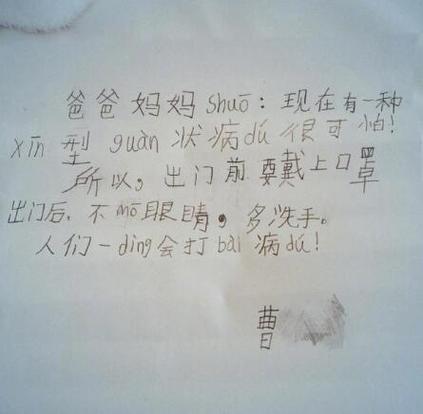 爸爸妈妈shuō：现在有一种
xīn型guàn状病dú很可怕！
所以，出门前要戴上口罩
出门后，不mō眼睛，多洗手。
人们一dìng会打bài病dú！
曹